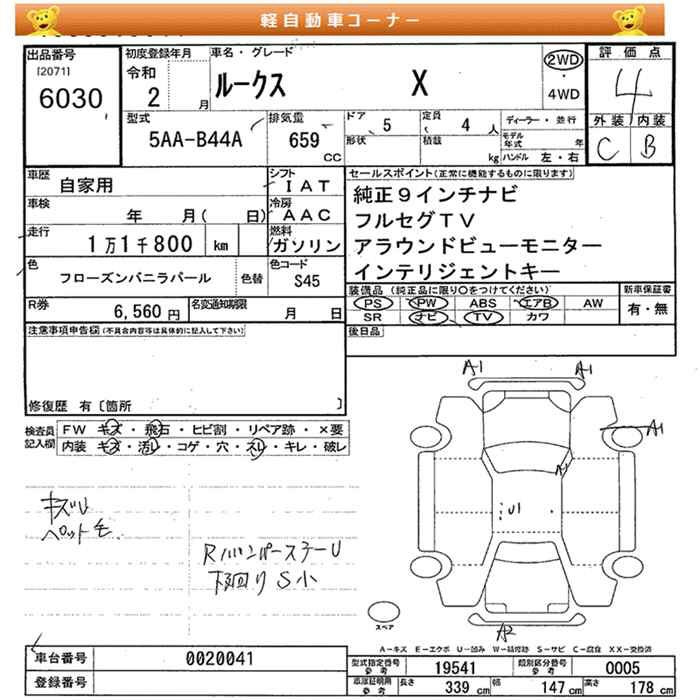 軽自動車コーナー
出品番号
[2071]
6030
初度登録年月
令和
2
月
車名・グレード
ルークス X
2WD
・
4WD
評価点
4
外装 内装
C B
型式
5AA-B44A
排気量
659
CC
ドア 5
形状
定員 4 人
積載 kg
ディーラー・並行
モデル年式 年
ハンドル 左・右
車歴
自家用
シフト
IAT
車検
年 月( 日)
冷房
AAC
走行
1万1千800 km
燃料
ガソリン
色
フローズンバニラパール
色替
色コード
S45
R券
6,560円
名変通知期限
月 日
セールスポイント(正常に機能するものに限ります)
純正9インチナビ
フルセグTV
アラウンドビューモニター
インテリジェントキー
装備品(純正品に限り○をつけてください)
PS PW ABS エアB AW
SR ナビ TV カワ
新車保証書
有・無
後日品
注意事項申告欄(不具合内容等は具体的に記入して下さい)
修復歴 有〔箇所 〕
検査員記入欄
FW キズ・飛石・ヒビ割・リペア跡・×要
内装 キズ・汚レ・コゲ・穴・スレ・キレ・破レ
キズU
ペット毛
Rバンパーステー U
下廻り S小
A1 A1
A1
A1
U1
A2
スペア
A-キズ E-エクボ U-凹み W-補修跡 S-サビ C-腐食 XX-交換済
車台番号
0020041
登録番号
型式指定番号 参考
19541
類別区分番号 参考
0005
車庫証明用 参考
長さ 339 cm
幅 147 cm
高さ 178 cm